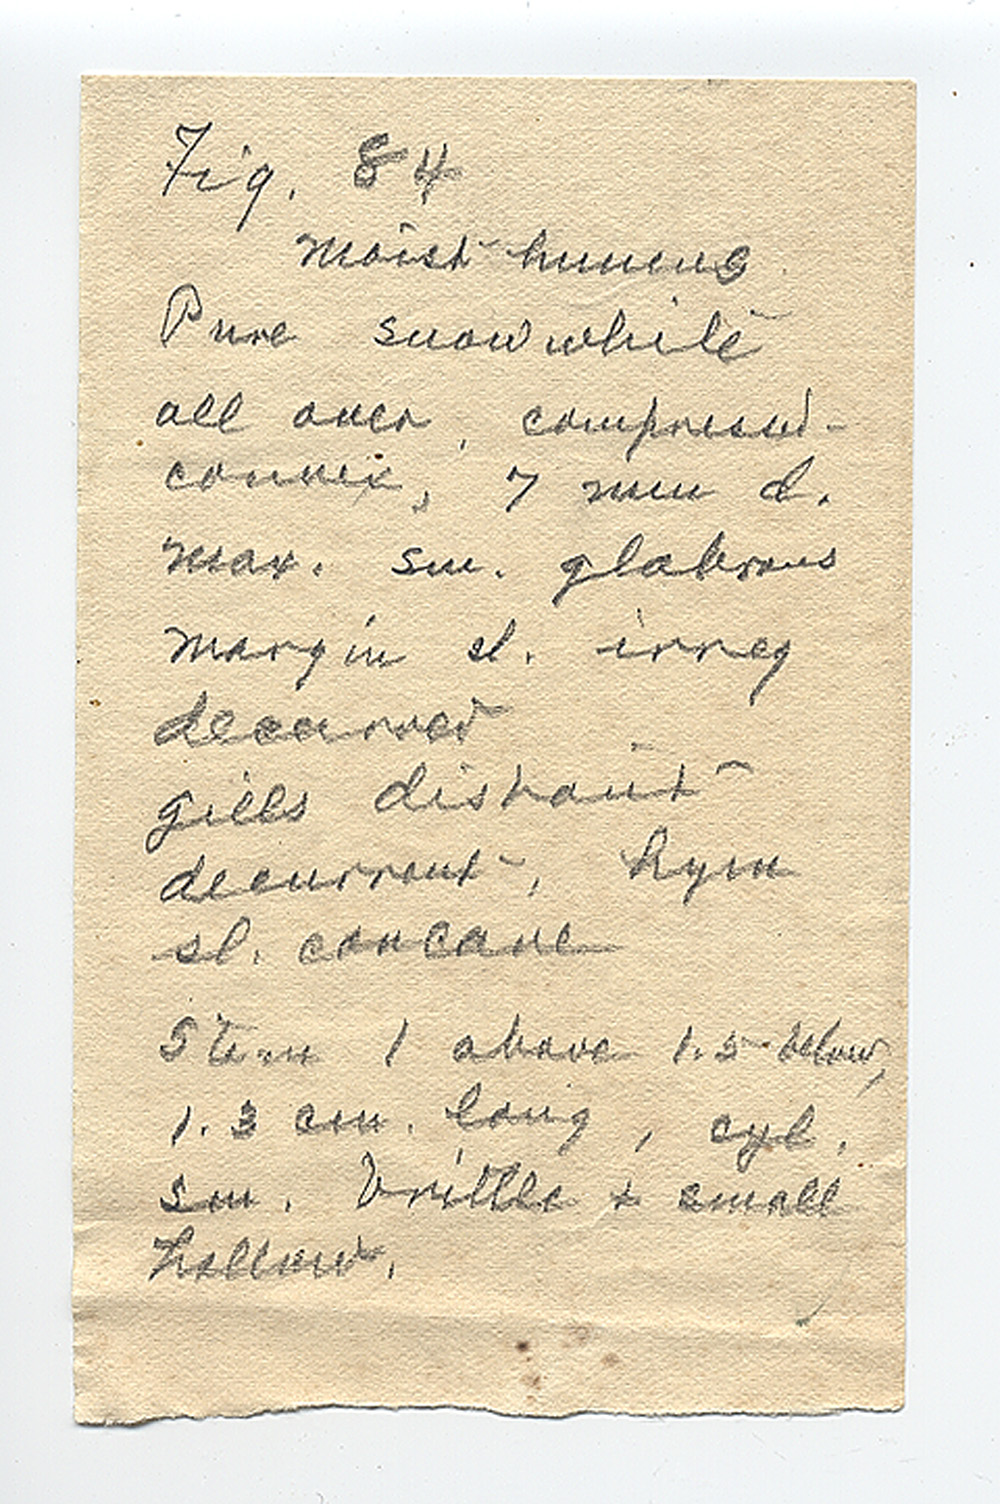 Fig. 84
moist humus
Pure snow white
all over, compressed-
convex, 7 mm d.
max. sm. glabrous
margin sl. irreg
decurved
gills distant
decurrent, hym
sl. concave
Stem 1 above 1.5 below,
1.3 cm. long, cyl.
sm. brittle + small
hollow.